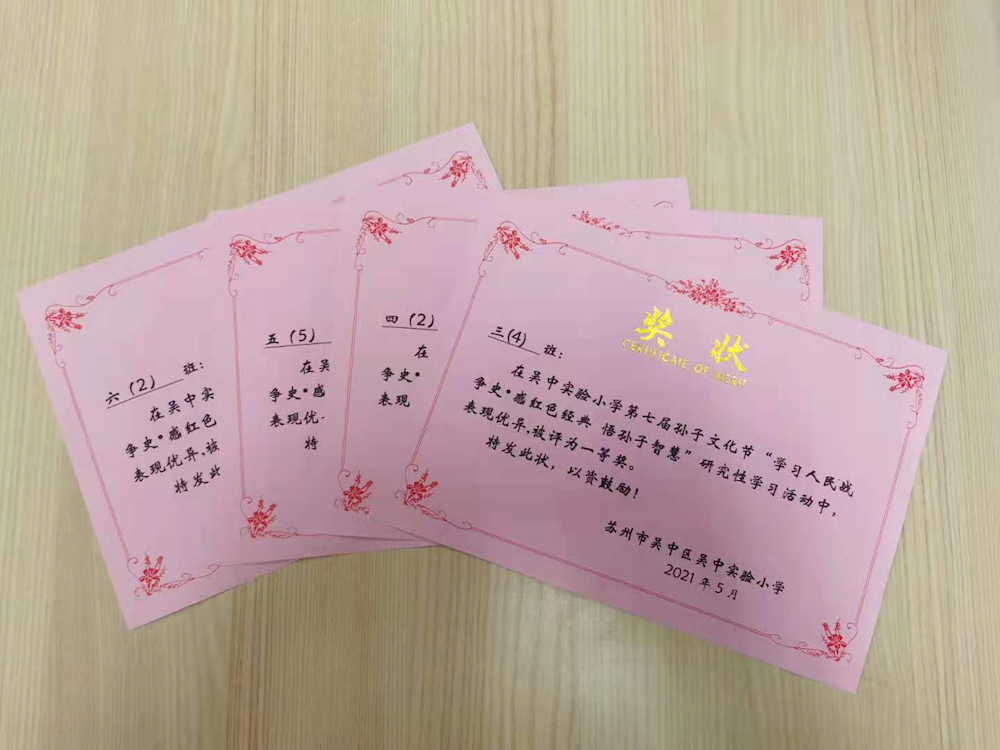 六(2) 班:
在吴中实
争史·感红色
表现优异,被
特发此
五(5)
在吴
争史·感
表现优
特
四(2)
在
争史·
表现
奖 状
CERTIFICATE OF MERIT
三(4) 班:
在吴中实验小学第七届孙子文化节“学习人民战
争史·感红色经典 悟孙子智慧”研究性学习活动中,
表现优异,被评为一等奖。
特发此状，以资鼓励!
苏州市吴中区吴中实验小学
2021年5月